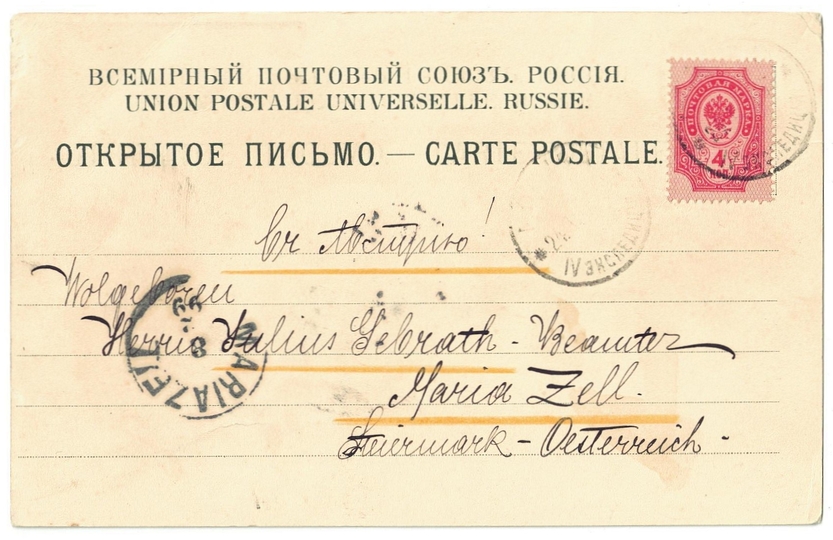 ВСЕМІРНЫЙ ПОЧТОВЫЙ СОЮЗЪ. РОССІЯ.
UNION POSTALE UNIVERSELLE. RUSSIE.
ОТКРЫТОЕ ПИСЬМО. — CARTE POSTALE.
ПОЧТОВАЯ МАРКА
4
КОП.
IV ЭКСПЕДИЦ
Въ Австрію!
Wolgeboren
Herrn Julius Gebrath - Beamter
Maria Zell.
Steiermark - Oesterreich -
MARIAZELL
99